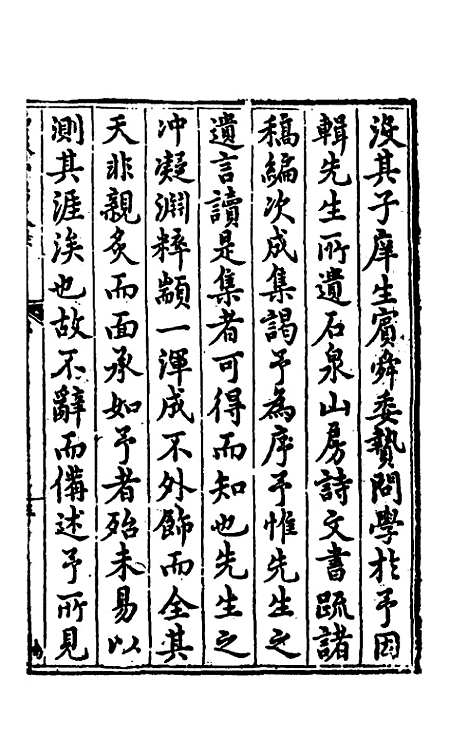 没其子庠生賓舜委贄問學於予因
輯先生所遺石泉山房詩文書疏諸
稿編次成集謁予為序予惟先生之
遺言讀是集者可得而知也先生之
冲凝渊粹顓一渾成不外飾而全其
天非親炙而面承如予者殆未易以
測其涯涘也故不辭而備述予所見